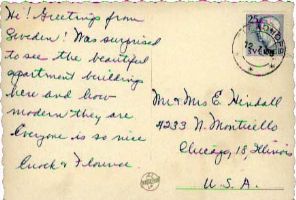 Hi! Greetings from
Sweden! Was surprised
to see the beautiful
apartment buildings
here and how
modern they are
Everyone is so nice
Enock & Florence
25
Mr & Mrs E. Hindall
4233 N. Monticello
Chicago, 18, Illinois
U. S. A.